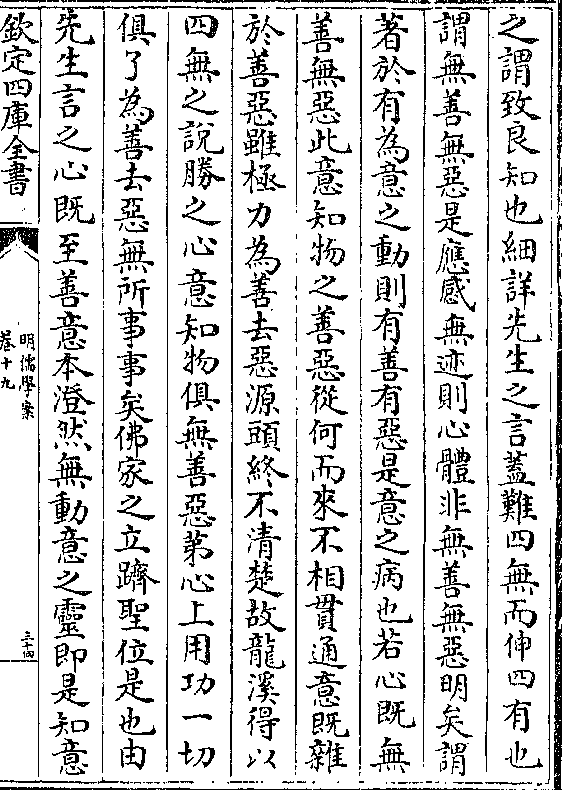 之謂致良知也細詳先生之言蓋難四無而伸四有也
謂無善無惡是應感無迹則心體非無善無惡明矣謂
著於有為意之動則有善有惡是意之病也若心既無
善無惡此意知物之善惡從何而來不相貫通意既雜
於善惡雖極力為善去惡源頭終不清楚故龍溪得以
四無之說勝之心意知物俱無善惡第心上用功一切
俱了為善去惡無所事事矣佛家之立躋聖位是也由
先生言之心既至善意本澄然無動意之靈即是知意
欽定四庫全書
明儒學案
卷十九
三十四